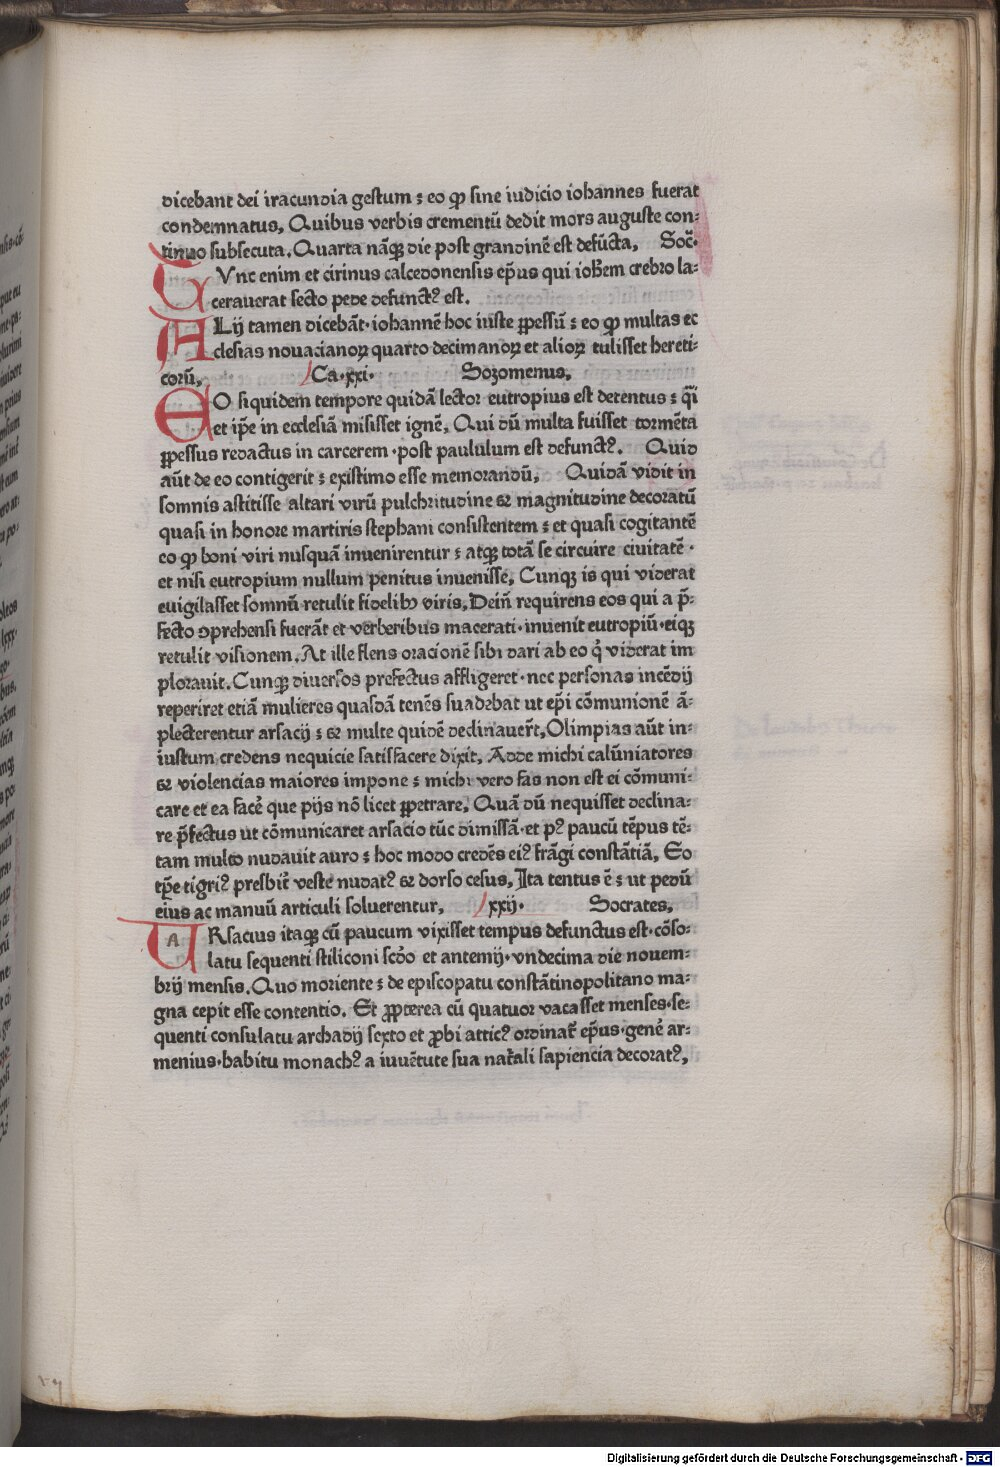 dicebant dei iracundia gestum : eo ꝙ sine iudicio iohannes fuerat
condemnatus. Quibus verbis crementū dedit mors auguste con-
tinuo subsecuta. Quarta nāqꝫ die post grandinē est defūcta. Soc̄.
TVnc enim et cirinus calcedonensis ep̄us qui ioh̄em crebro la-
cerauerat secto pede defunctꝰ est.
ALij tamen dicebāt·iohannē hoc iuste ꝑpessū : eo ꝙ multas ec
clesias nouacianoꝝ quarto decimanoꝝ et alioꝝ tulisset hereti-
corū. Ca·xxi· Sozomenus.
EO siquidem tempore quidā lector eutropius est detentus : q̄i
et ip̄e in ecclesiā misisset ignē. Qui dū multa fuisset tormēta
ꝑpessus redactus in carcerem·post paululum est defunctꝰ. Quid
aūt de eo contigerit : existimo esse memorandū. Quidā vidit in
somnis astitisse altari virū pulchritudine ⁊ magnitudine decoratū
quasi in honore martiris stephani consistentem : et quasi cogitantē
eo ꝙ boni viri nusquā inuenirentur : atqꝫ totā se circuire ciuitatē·
et nisi eutropium nullum penitus inuenisse. Cunqꝫ is qui viderat
euigilasset somnū·retulit fidelibꝫ viris. Dein̄ requirens eos qui a p̄-
fecto ꝯprehensi fuerāt et verberibus macerati·inuenit eutropiū·eiqꝫ
retulit visionem. At ille flens oracionē sibi dari ab eo q̇ viderat im
plorauit. Cunqꝫ diuersos prefectus affligeret·nec personas incēdij
reperiret etiā mulieres quasdā tenēs suadebat ut ep̄i cōmunionē ā-
plecterentur arsacij : ⁊ multe quidē declinauer̄t. Olimpias aūt in-
iustum credens nequicie satisfacere dixit. Adde michi calūniatores
⁊ violencias maiores impone : michi vero fas non est ei cōmuni-
care et ea facē que pijs nō licet ꝑpetrare. Quā dū nequisset declina-
re p̄fectus ut cōmunicaret arsacio tūc dimissā·et pꝰ paucū tēpus tē-
tam multo nudauit auro : hoc modo credēs eiꝰ frāgi constātiā. Eo
tp̄e tigriꝰ presbit̄ veste nudatꝰ ⁊ dorso cesus. Ita tentus ē : ut pedū
eius ac manuū articuli soluerentur. xxij· Socrates.
ARsacius itaqꝫ cū paucum vixisset tempus defunctus est·cōso-
latu sequenti stiliconi scd̄o et antemij·vndecima die nouem-
brij mensis. Quo moriente : de episcopatu constātinopolitano ma-
gna cepit esse contentio. Et ꝓpterea cū quatuor vacasset menses·se-
quenti consulatu archadij sexto et ꝓbi atticꝰ ordinat̄ ep̄us·genē ar-
menius·habitu monachꝰ a iuuētute sua nat̄ali sapiencia decoratꝰ.
Digitalisierung gefördert durch die Deutsche Forschungsgemeinschaft · DFG